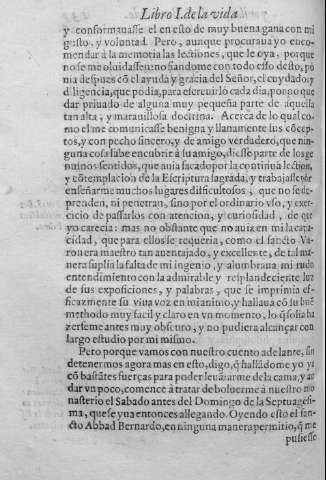 Libro I. de la vida
y conformauasse el en esto de muy buena gana con mi
gusto, y voluntad. Pero, aunque procuraua yo enco-
mendar à la memoria las lectiones, que le oya, porque
no se me oluidassen: no fiandome con todo esso desto, po
nia despues cõ el ayuda y gracia del Señor, el cuydado, y
diligencia, que podia, para escreuirlo cada dia, por no que
dar priuado de alguna muy pequeña parte de aquella
tan alta, y marauillosa doctrina. Acerca de lo qual co-
mo el me comunicasse benigna y llanamente sus cõcep-
tos, y con pecho sincero, y de amigo verdadero, que nin-
guna cosa sabe encubrir à su amigo, diesse parte de los ge
nuinos sentidos, que auia sacado por la continua lectiõn,
y cõtemplacion de la Escriptura sagrada, y trabajasse por
enseñarme muchos lugares difficultosos, que no se de-
prenden, ni penetran, sino por el ordinario vso, y exer-
cicio de passarlos con atencion, y curiosidad, de que
yo carecia: mas no obstante que no auia en mi la capa-
cidad, que para ellos se requeria, como el sancto Va-
ron era maestro tan auentajado, y excellente, de tal ma
nera suplia la falta de mi ingenio, y alumbraua mi rudo
entendimiento con la admirable y resplandeciente luz
de sus exposiciones, y palabras, que se imprimia ef-
ficazmente su viua voz en mi animo, y hallaua cõ su buẽ
methodo muy facil y claro en vn momento, lo q̃ solia ha
zerseme antes muy obscuro, y no pudiera alcançar con
largo estudio por mi mismo.
Pero porque vamos con nuestro cuento adelante, sin
detenermos agora mas en esto, digo, q̃ hallãdome yo ya
cõ bastãtes fuerças para poder leuãtarme de la cama, y an
dar vn poco, comencè à tratar de boluerme à nuestro mo
nasterio el Sabado antes del Domingo de la Septuages-
sima, que se yua entonces allegando. Oyendo esto el san-
cto Abbad Bernardo, en ninguna manera permitio, q̃ me
pusiesse